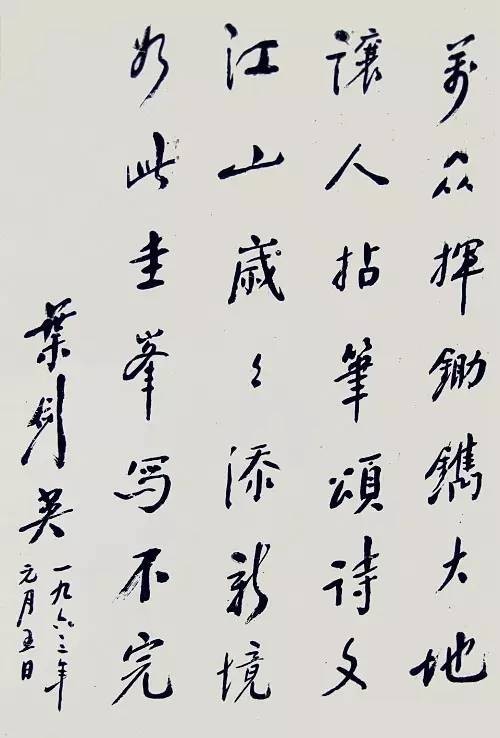 萬众揮鋤鐫大地
讓人拈筆頌詩文
江山歲々添新境
如此圭峯写不完
葉剑英
一九六三年
元月五日